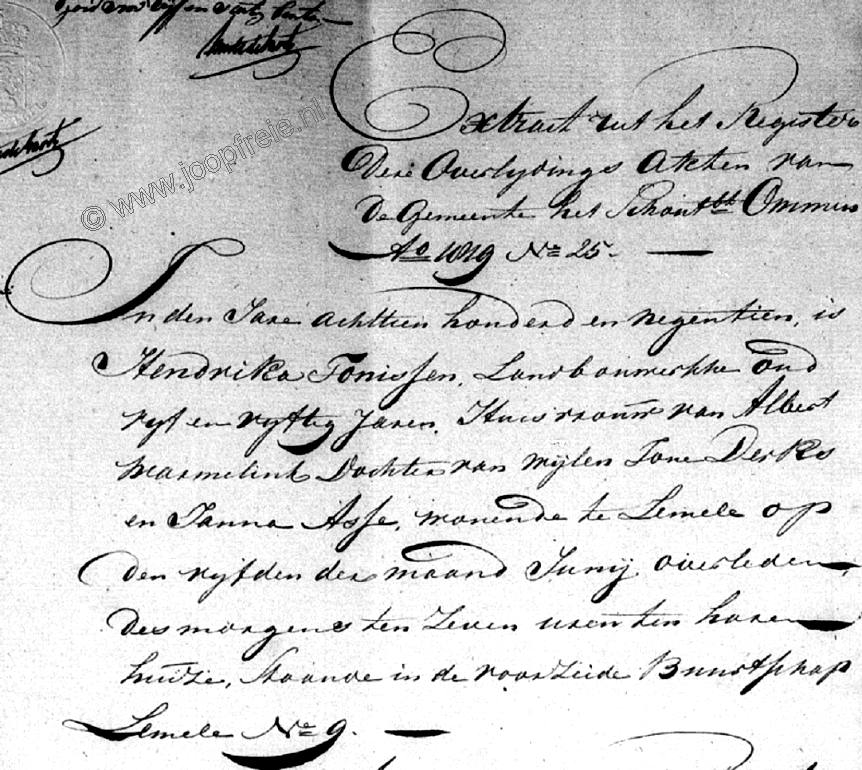 © www.joopfreie.nl
Extract uit het Register
Der Overlydings Akten van
de Gemeente het Schoutt Ommen
Ao 1819 No 25.
In den Jare achttien honderd en negentien, is
Hendrika Tonissen, Landbouwersche oud
vyf en vyftig Jaren, Huisvrouw van Albert
Marmelink Dochter van wylen Tone Derks
en Janna Asse, wonende te Lemele op
den vyfden der maand Juny overleden,
des morgens ten Zeven uren ten haren
huize, Staande in de voorzeide Buurtschap
Lemele No 9.